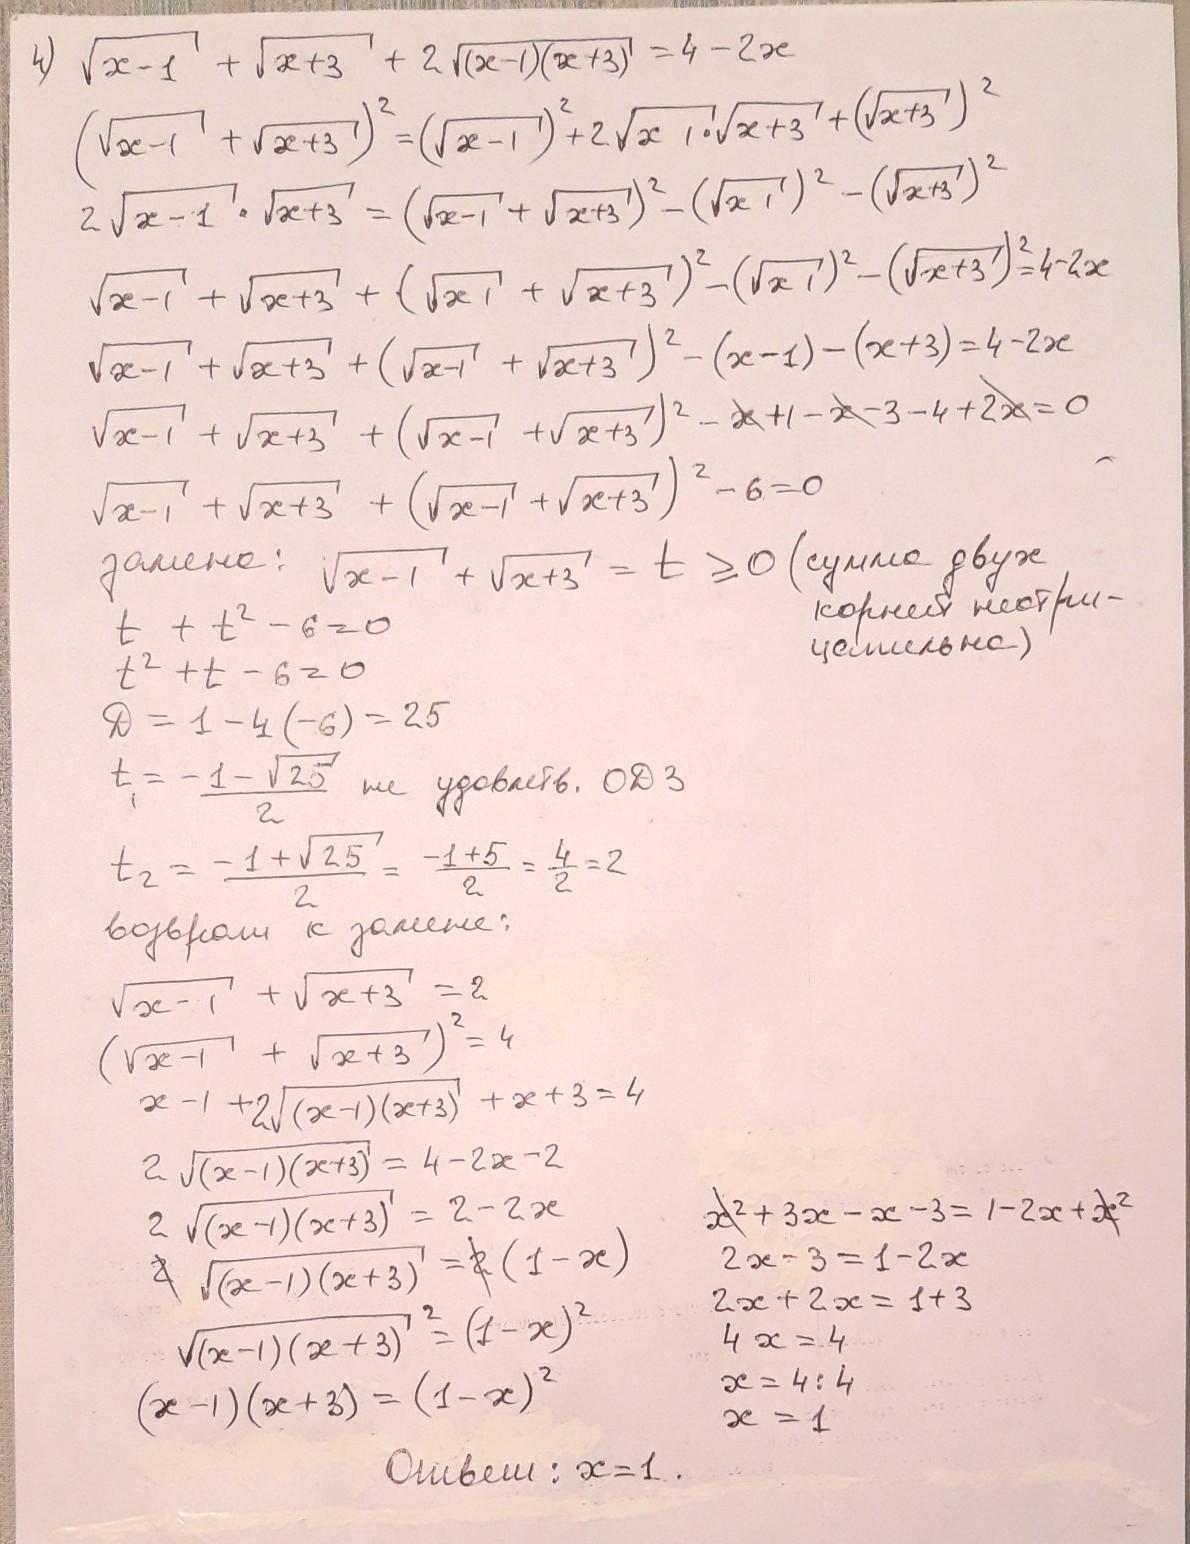 4) √(x-1) + √(x+3) + 2√((x-1)(x+3)) = 4 - 2x
(√(x-1) + √(x+3))² = (√(x-1))² + 2√(x 1)·√(x+3) + (√(x+3))²
2√(x-1) · √(x+3) = (√(x-1) + √(x+3))² - (√(x 1))² - (√(x+3))²
√(x-1) + √(x+3) + (√(x 1) + √(x+3))² - (√(x 1))² - (√(x+3))² = 4-2x
√(x-1) + √(x+3) + (√(x-1) + √(x+3))² - (x-1) - (x+3) = 4-2x
√(x-1) + √(x+3) + (√(x-1) + √(x+3))² - x + 1 - x - 3 - 4 + 2x = 0
√(x-1) + √(x+3) + (√(x-1) + √(x+3))² - 6 = 0
замена: √(x-1) + √(x+3) = t ⩾ 0 (сумма двух
корней неотри-
цательна)
t + t² - 6 = 0
t² + t - 6 = 0
D = 1 - 4(-6) = 25
t₁ = (-1-√25)/2 не удовлетв. ОДЗ
t₂ = (-1+√25)/2 = (-1+5)/2 = 4/2 = 2
возврат к замене:
√(x-1) + √(x+3) = 2
(√(x-1) + √(x+3))² = 4
x-1 + 2√((x-1)(x+3)) + x + 3 = 4
2√((x-1)(x+3)) = 4-2x-2
2√((x-1)(x+3)) = 2-2x
2√((x-1)(x+3)) = 2(1-x)
√((x-1)(x+3))² = (1-x)²
(x-1)(x+3) = (1-x)²
x² + 3x - x - 3 = 1-2x+x²
2x - 3 = 1-2x
2x + 2x = 1+3
4x = 4
x = 4:4
x = 1
Ответ: x=1.